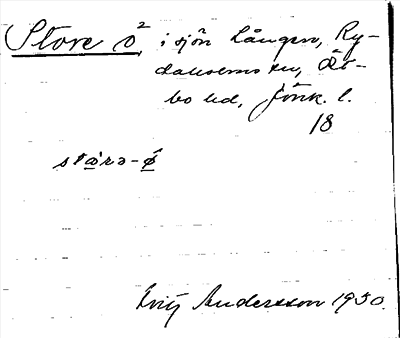 Store ö² i sjön Lången, Ry-
daholms sn, Öst-
bo hd, Jönk. l.
18
stœ̀rə-ǿ
Fritz Andersson 1930.